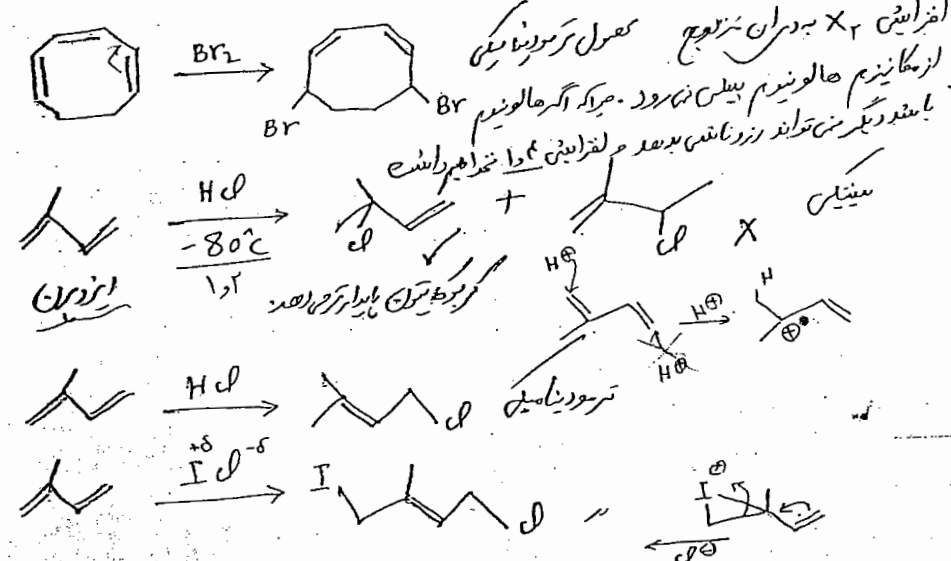 Br₂
Br
Br
افزایش X₂ به دی‌ان مزدوج محصول ترمودینامیکی
از مکانیزم هالونیوم پیش نمی رود. چرا که اگر هالونیوم
باشد دیگر نمی تواند رزونانس بدهد و افزایش ۱,۴ نخواهیم داشت
HCl
-80°C
۱,۲
ایزوپرن
Cl
+
Cl
X
سینتیکی
کربوکاتیون پایدارتر می دهد.
H⊕
H⊕
H⊕
H
⊕
HCl
Cl
ترمودینامیکی
+δ -δ
I Cl
I
Cl
I⊕
Cl⊖